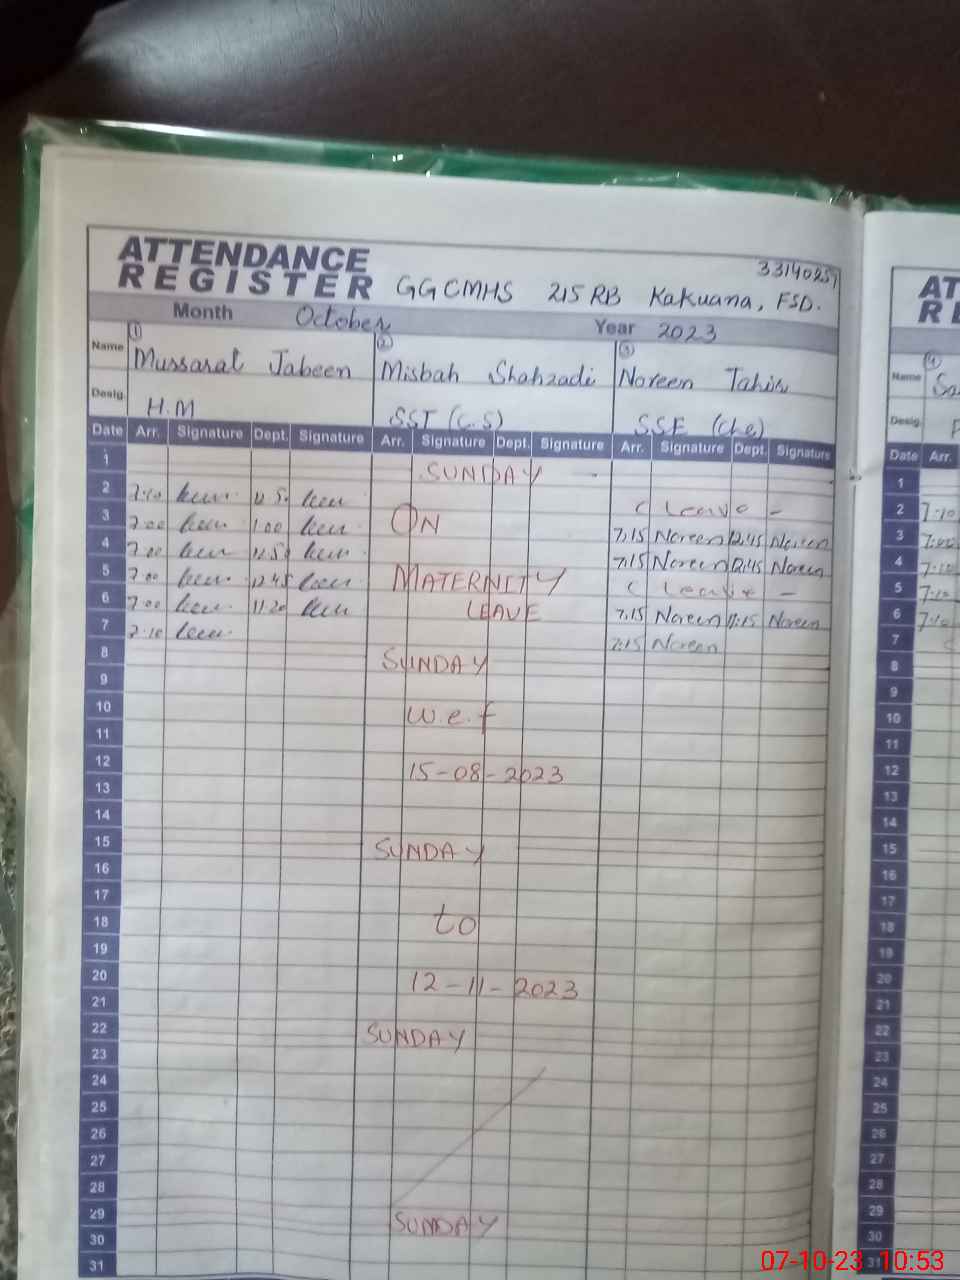 ATTENDANCE
REGISTER GGCMHS 215 RB Kakuana, FSD.
33140251
Month October Year 2023
Name ① Mussarat Jabeen ② Misbah Shahzadi ③ Noreen Tahir
Desig. H.M SST (C.S) SSE (Che)
Date Arr. Signature Dept. Signature Arr. Signature Dept. Signature Arr. Signature Dept. Signature
1 SUNDAY
2 7:10 12:50 ( Leave -
3 7:00 1:00 ON 7:15 Noreen 12:45 Noreen
4 7:00 12:50 7:15 Noreen 12:45 Noreen
5 7:00 12:45 MATERNITY ( Leave -
6 7:00 11:20 LEAVE 7:15 Noreen 11:15 Noreen
7 7:10 7:15 Noreen
8 SUNDAY
9
10 w.e.f
11
12 15-08-2023
13
14
15 SUNDAY
16
17
18 to
19
20 12-11-2023
21
22 SUNDAY
23
24
25
26
27
28
29 SUNDAY
30
31
AT
RE
④
Name
Desig.
Date Arr.
1
2 7:10
3 7:00
4 7:10
5 7:10
6 7:10
7
8
9
10
11
12
13
14
15
16
17
18
19
20
21
22
23
24
25
26
27
28
29
30
31
07-10-23 10:53